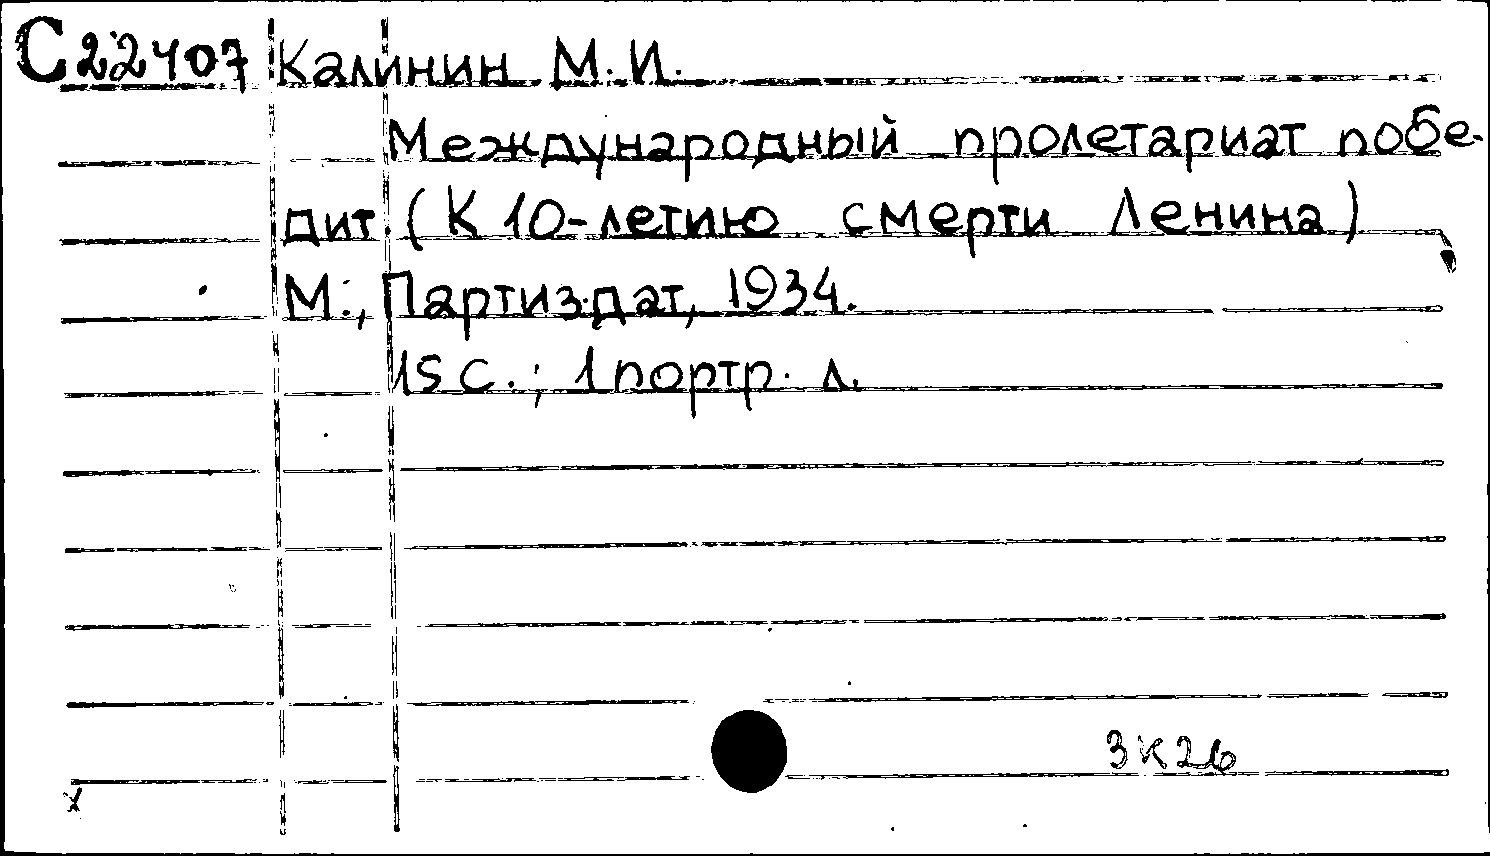 С22407 Калинин М. И.
Международный пролетариат побе-
дит (К 10-летию смерти Ленина)
М., Партиздат, 1934.
15 с.; 1 портр. л.
3К26
х